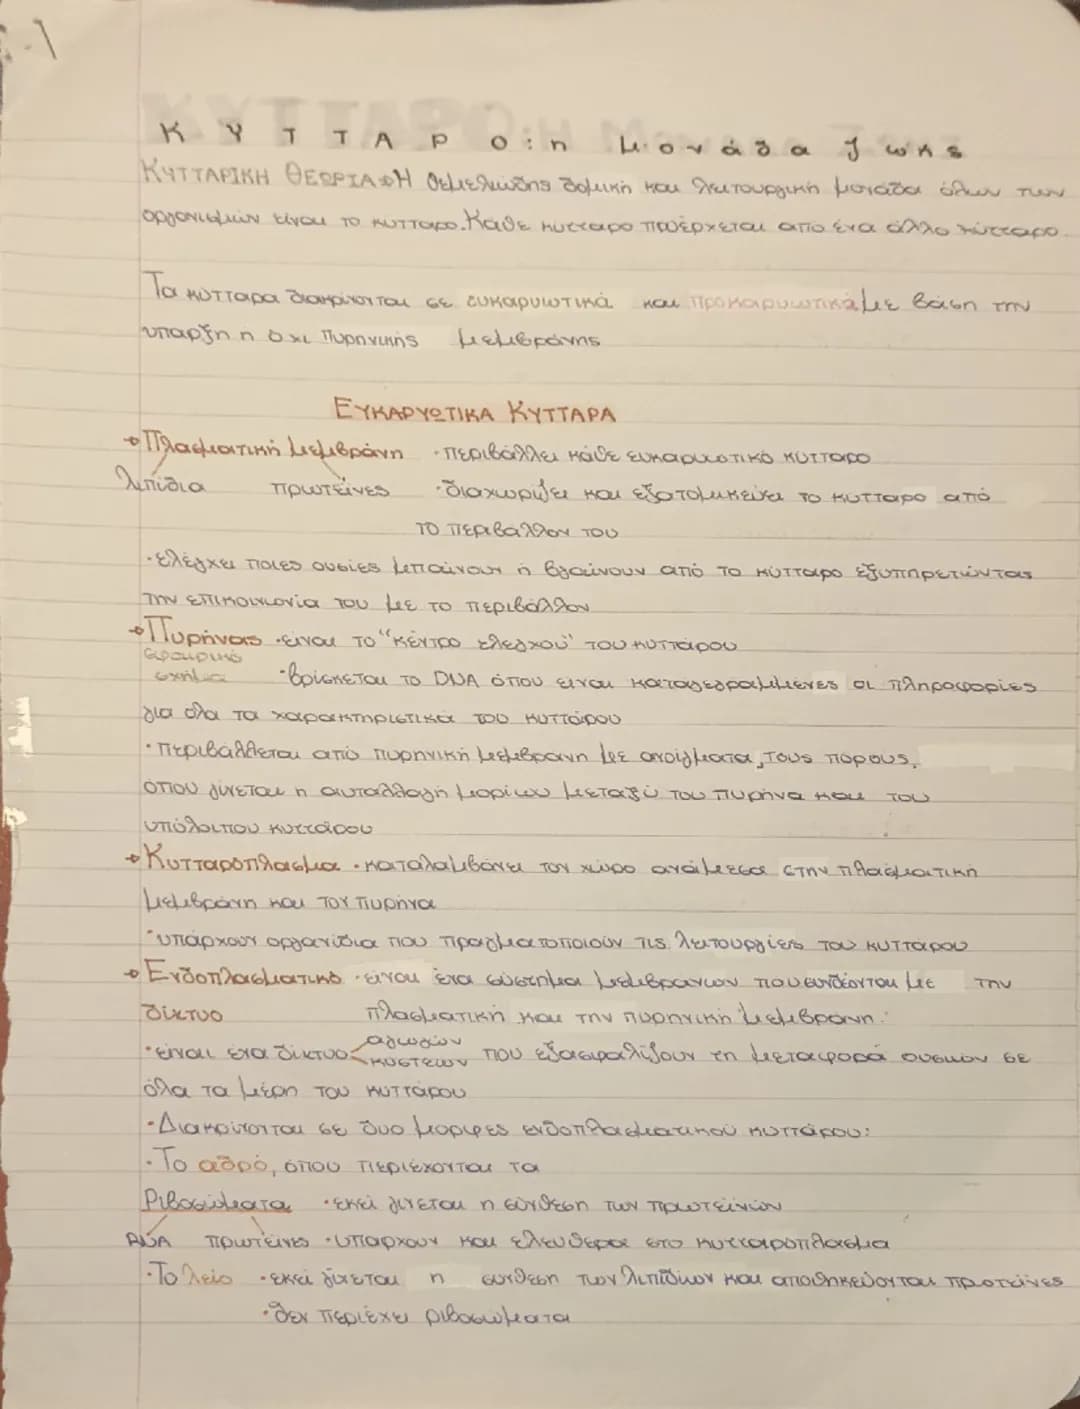 ΚΥΤΤΑΡΟ: η μονάδα ζωής
ΚΥΤΤΑΡΙΚΗ ΘΕΩΡΙΑ→Η θεμελιώδης δομική και λειτουργική μονάδα όλων των
οργανισμών είναι το κύτταρο. Κάθε κύτταρο προέρχεται από ένα άλλο κύτταρο.
Τα κύτταρα διακρίνονται σε ευκαρυωτικά και προκαρυωτικά με βάση την
υπαρξη η όχι πυρηνικής μεμβράνης
ΕΥΚΑΡΥΩΤΙΚΑ ΚΥΤΤΑΡΑ
→Πλασματική μεμβράνη • περιβάλλει κάθε ευκαρυωτικό κύτταρο
λιπίδια πρωτεϊνες • διαχωρίζει και εξατομικεύει το κυτταρο από
το περιβάλλον του
• ελέγχει ποιες ουσίες μπαίνουν ή βγαίνουν από το κύτταρο εξυπηρετώντας
την επικοινωνία του με το περιβάλλον
→Πυρήνας • ειναι το "κέντρο ελεγχού" του κυττάρου
σφαιρικό
σχήμα • βρίσκεται το DNA όπου ειναι καταγεγραμμενες οι πληροφορίες
για όλα τα χαρακτηριστικά του κυττάρου
• Περιβάλλεται από πυρηνική μεμβρανη με ανοίγματα, τους πόρους,
όπου γίνεται η ανταλλαγή μορίων μεταξύ του πυρήνα και του
υπόλοιπου κυττάρου
→Κυτταρόπλασμα • καταλαμβάνει τον χώρο ανάμεσα στην πλασματική
μεμβράνη και τον πυρήνα
• υπάρχουν οργανίδια που πραγματοποιούν τις λειτουργίες του κυτταρου
→Ενδοπλασματικό • είναι ένα σύστημα μεμβρανών που συνδέονται με την
δίκτυο πλασματική και την πυρηνική μεμβρανη.
αγωγών
• είναι ένα δίκτυο κύστεων που εξασφαλίζουν τη μεταφορά ουσιών σε
όλα τα μέρη του κυττάρου
• Διακρίνονται σε δυο μορφες ενδοπλασματικού κυττάρου:
• Το αδρό, όπου περιέχονται τα
Ριβοσώματα • εκεί γίνεται η σύνθεση των πρωτεϊνών
RNA πρωτεϊνες • υπαρχουν και ελευθερα στο κυτταρόπλασμα
• Το λείο • εκεί γίνεται η συνθεση των λιπιδίων και αποθηκεύονται πρωτεϊνες
• δεν περιέχει ριβοσώματα